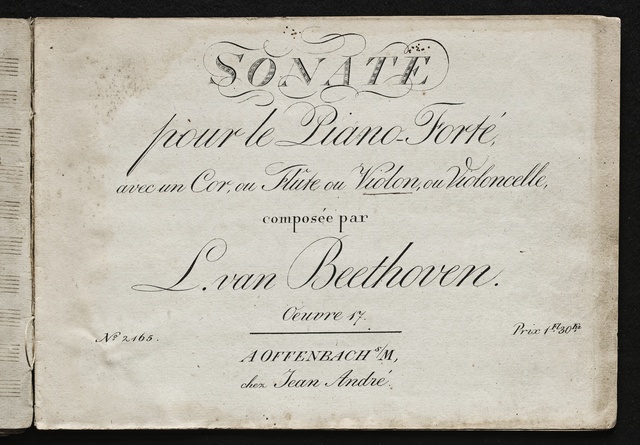 SONATE
pour le Piano-Forté,
avec un Cor, ou Flûte ou Violon, ou Violoncelle,
composée par
L. van Beethoven.
Oeuvre 17.
No 2165.
Prix 1 Fl 30 Kr
A OFFENBACH s/M,
chez Jean André.